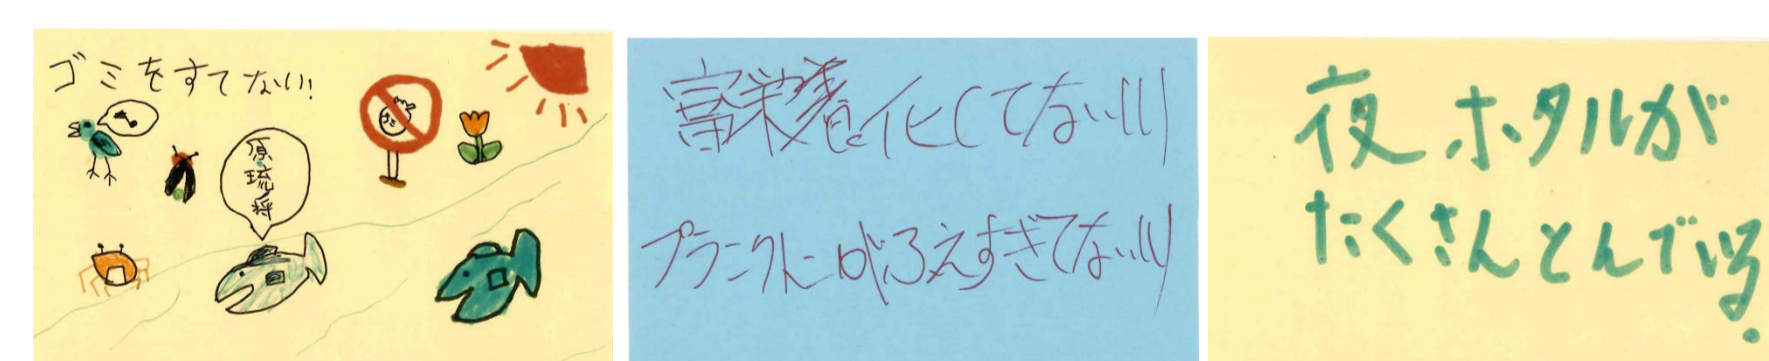 ゴミをすてない!
原琉将
富栄養化してない!!!
プランクトンがふえすぎてない!!!
夜ホタルが
たくさんとんでいる.